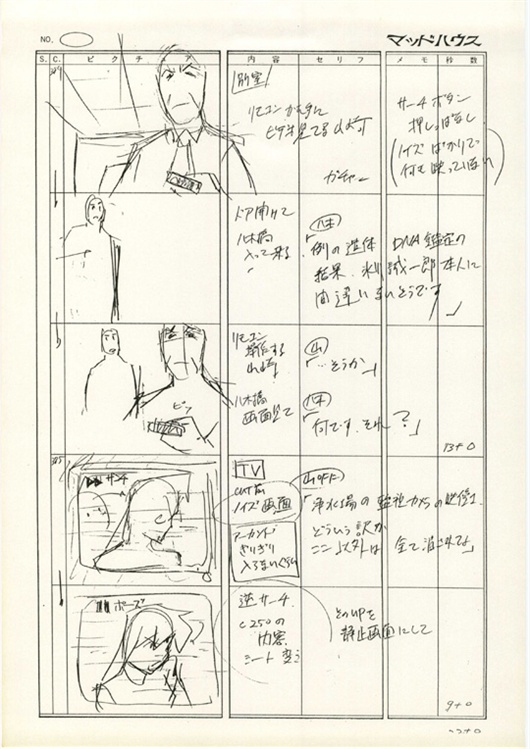 NO.
マッドハウス
S. C. ピクチア 内容 セリフ メモ 秒数
別室
リモコン
ガチャー
サーチボタン
押しっぱなし
(ノイズばかりで
何も映っていない)
ドア開けて
八木橋
入って来る
八木
「例の遺体 DNA鑑定の
結果、水川誠一郎本人に
間違いないそうです」
リモコン
操作する
山崎
八木橋
画面見て
ピッ
山
「…そうか」
八木
「何です、それ?」
13+0
サーチ
TV
ノイズ画面
ぎりぎり
入るまいぐらい
山OFF
「浄水場の監視カメラの映像だ
どういう訳か
ここ以外は全て消されてる」
ポーズ
逆サーチ
C250の
内容
シート変う
そのUPを
静止画面にして
9+0